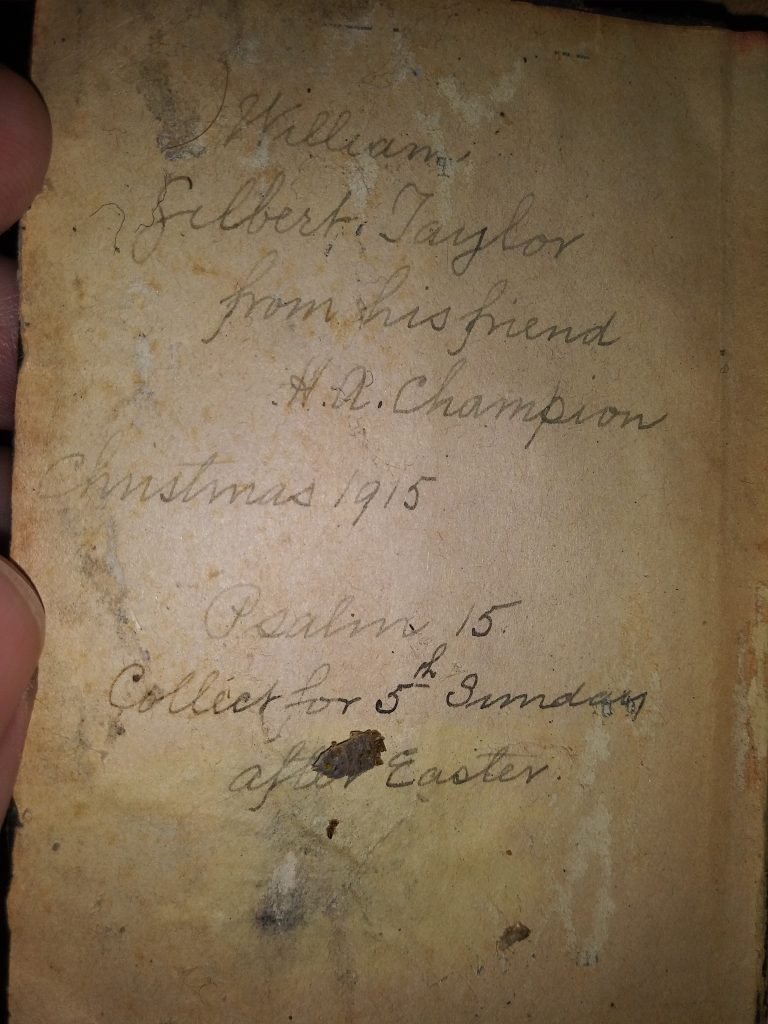 William
Gilbert Taylor
from his friend
H.A. Champion
Christmas 1915
Psalm 15.
Collect for 5th Sunday
after Easter.